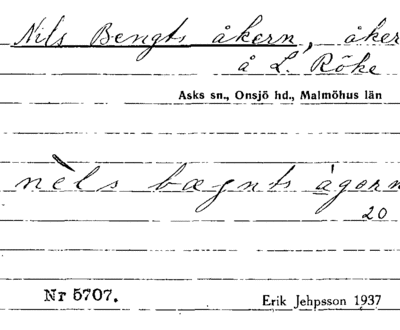 Nils Bengts åkern, åker
å L. Röke
Asks sn., Onsjö hd., Malmöhus län
nèls bægnts ågorn
20
Nr 5707.
Erik Jehpsson 1937